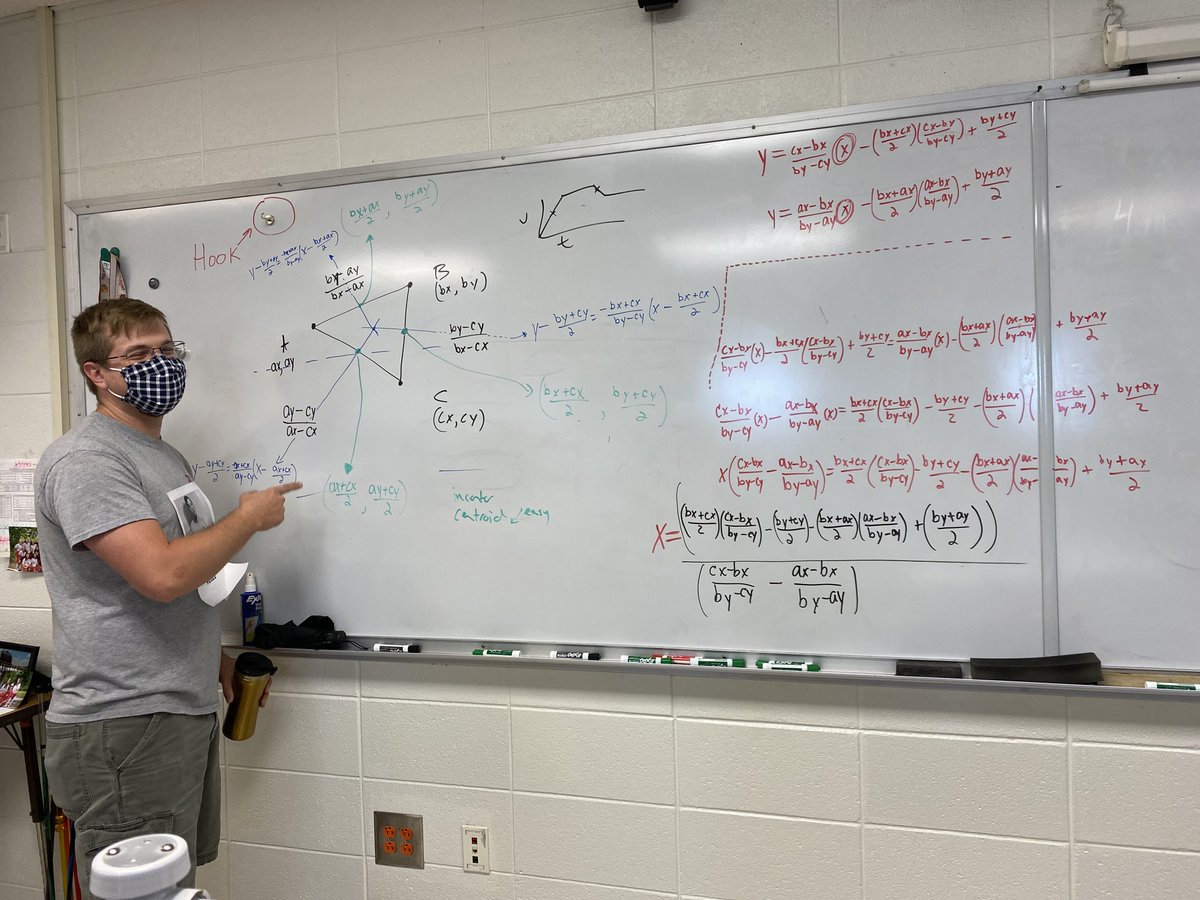 Hook
(bx+ax/2, by+ay/2)
y - by+ay/2 = -bx+ax/by-ay (x - bx+ax/2)
by-ay/bx-ax
V
t
B
(bx, by)
by-cy/bx-cx
y - by+cy/2 = -bx+cx/by-cy (x - bx+cx/2)
A
ax, ay
(bx+cx/2, by+cy/2)
C
(cx, cy)
ay-cy/ax-cx
y - ay+cy/2 = -ax+cx/ay-cy (x - ax+cx/2)
(ax+cx/2, ay+cy/2)
incenter
centroid easy
y = cx-bx/by-cy (x) - (bx+cx/2)(cx-bx/by-cy) + by+cy/2
y = ax-bx/by-ay (x) - (bx+ax/2)(ax-bx/by-ay) + by+ay/2
cx-bx/by-cy (x) - bx+cx/2 (cx-bx/by-cy) + by+cy/2 = ax-bx/by-ay (x) - (bx+ax/2)(ax-bx/by-ay) + by+ay/2
cx-bx/by-cy (x) - ax-bx/by-ay (x) = bx+cx/2 (cx-bx/by-cy) - by+cy/2 - (bx+ax/2)(ax-bx/by-ay) + by+ay/2
x(cx-bx/by-cy - ax-bx/by-ay) = bx+cx/2 (cx-bx/by-cy) - by+cy/2 - (bx+ax/2)(ax-bx/by-ay) + by+ay/2
x = ((bx+cx/2)(cx-bx/by-cy) - (by+cy/2) - (bx+ax/2)(ax-bx/by-ay) + (by+ay/2))
(cx-bx/by-cy - ax-bx/by-ay)
EXPO